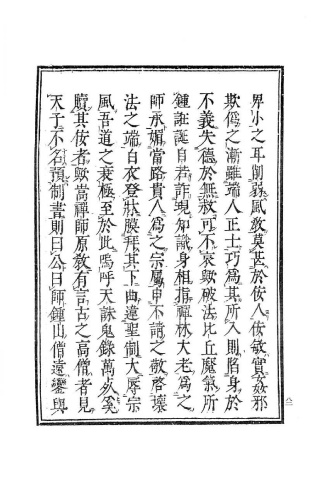 卑小之耳削弱風教莫甚於佞人佞敏實姦邪
欺僞之漸雖端人正士巧爲其所入則陷身於
不義失德於無救可不哀歟破法比丘魔氣所
鍾誑誕自若詐現知識身相指禪林大老爲之
師承媚當路貴人爲之宗屬申不請之敬啓壞
法之端白衣登牀膜拜其下曲違聖制大辱宗
風吾道之衰極至於此嗚呼天誅鬼錄萬死奚
贖其佞者歟嵩禪師原教有言古之高僧者見
天子不名預制書則曰公曰師鍾山僧遠鑾輿